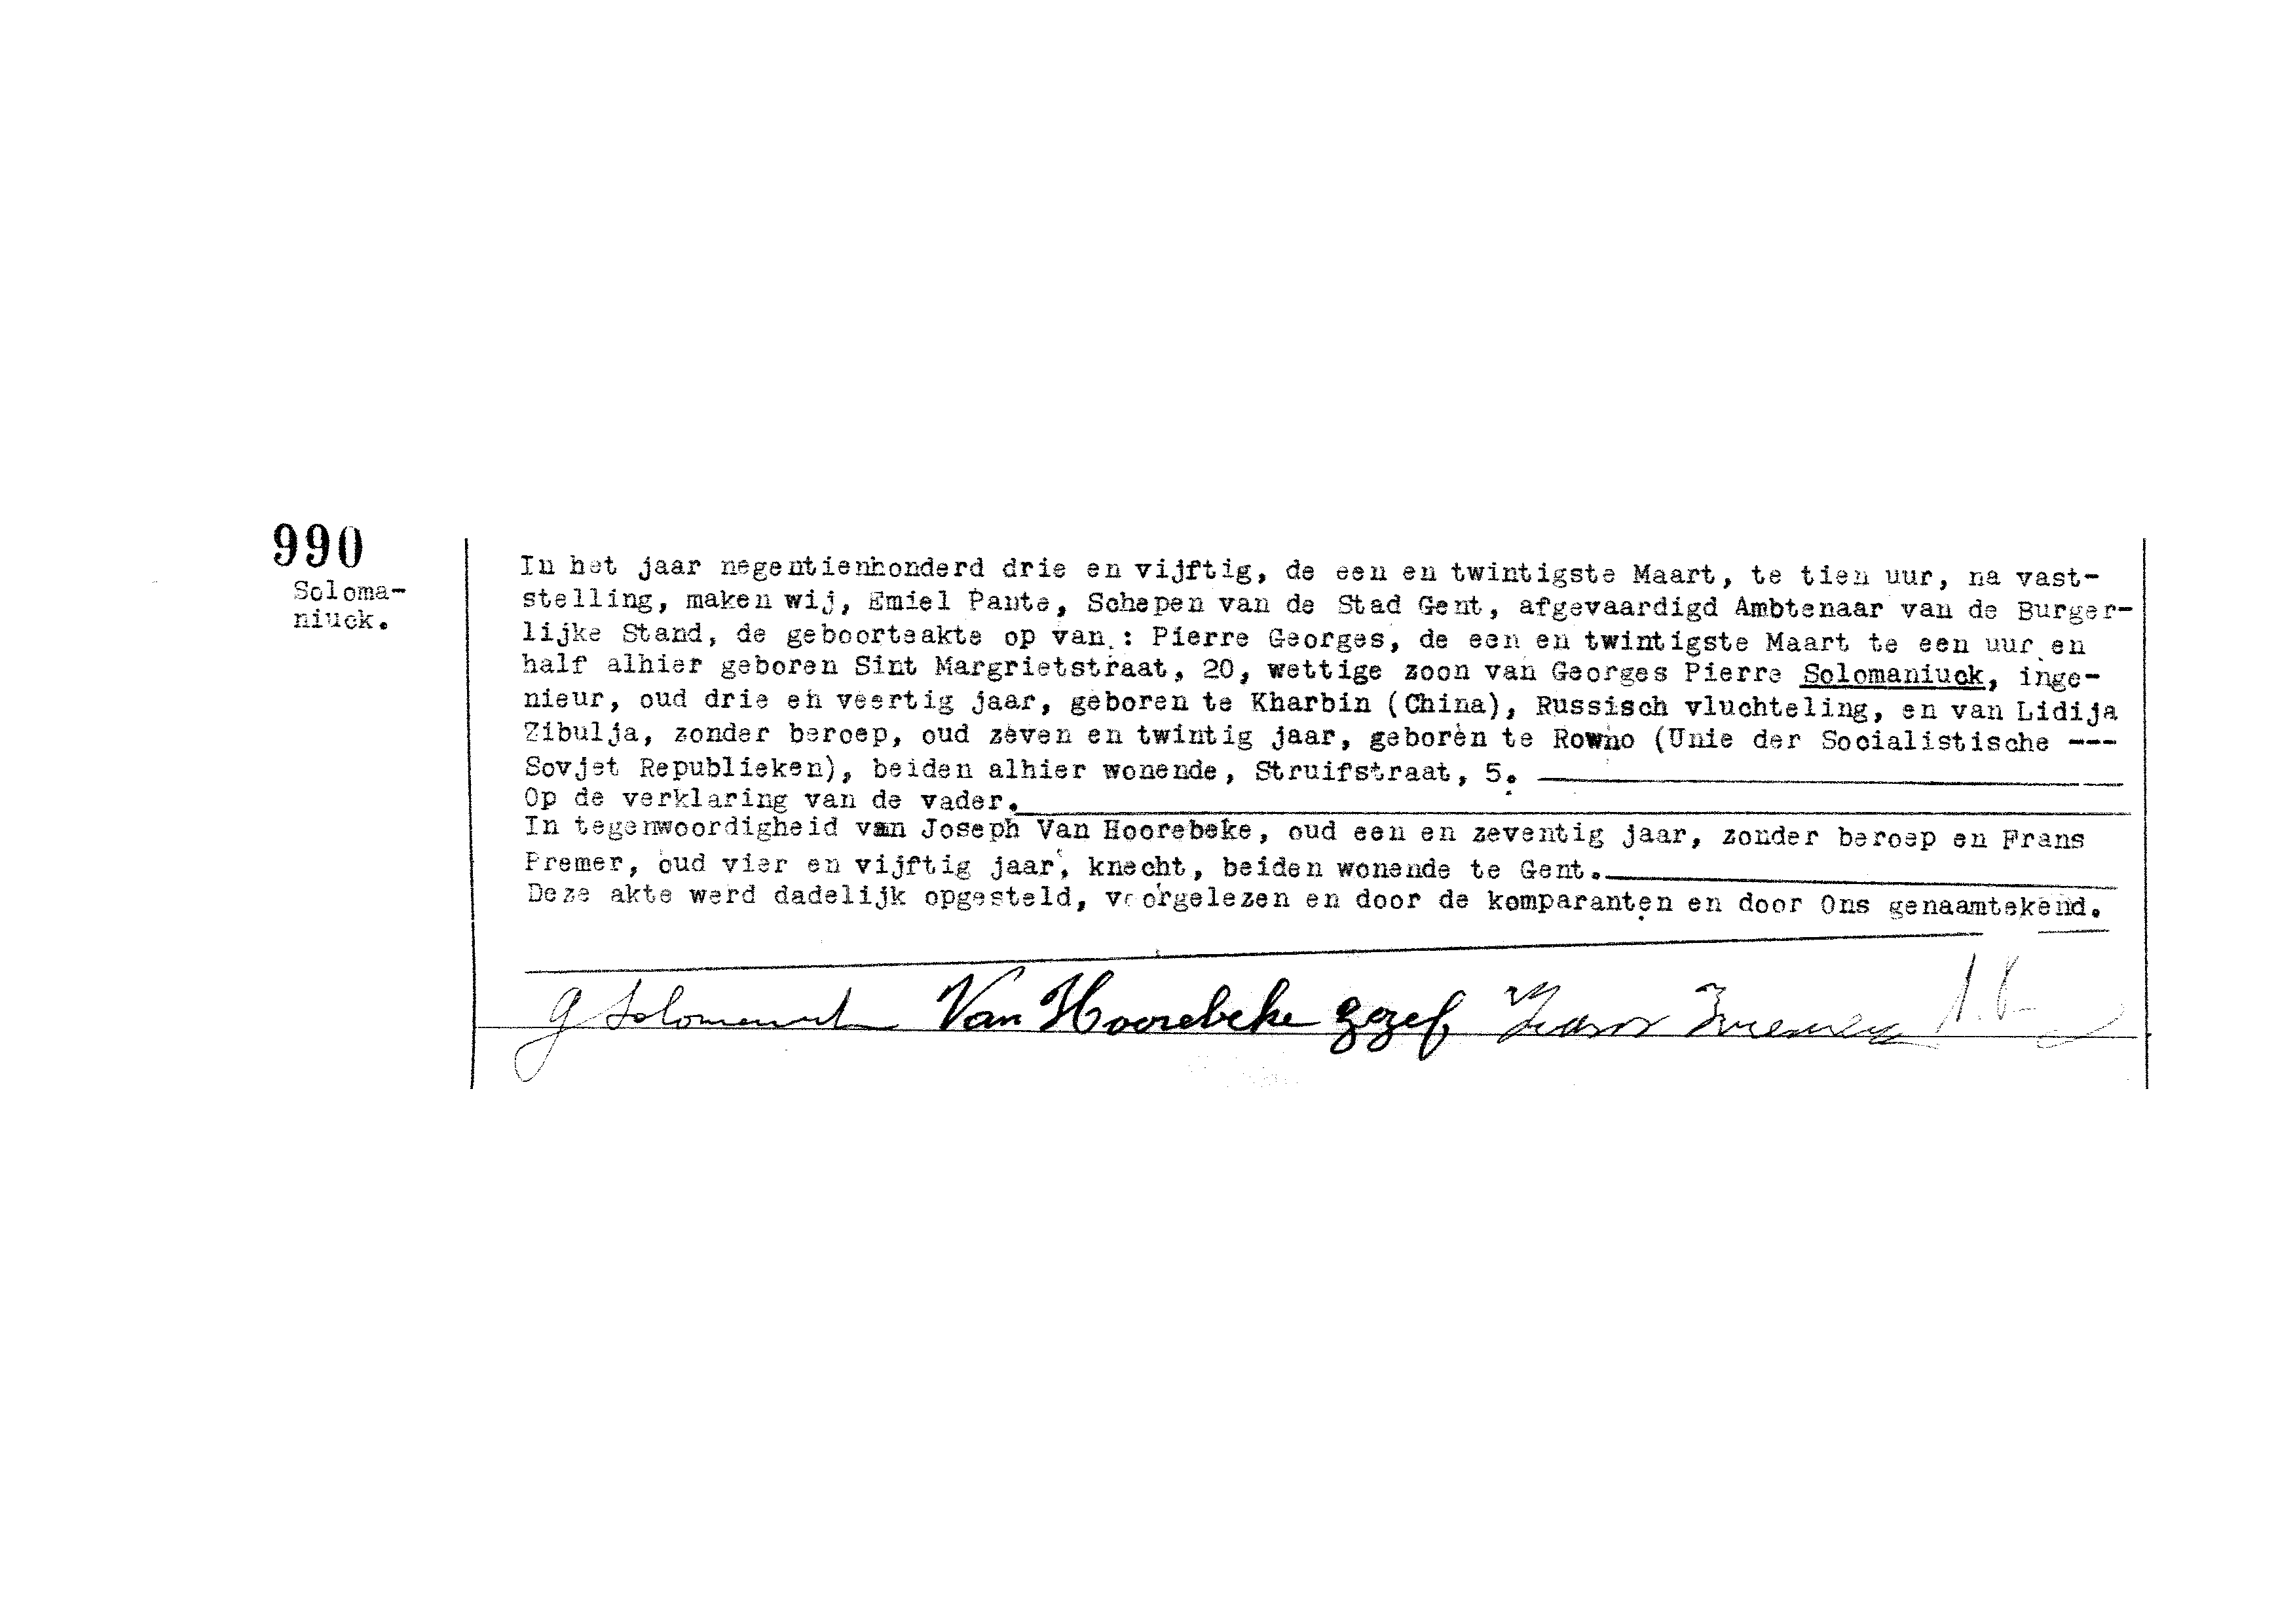 990
Soloma-
niuck.
In het jaar negentienhonderd drie en vijftig, de een en twintigste Maart, te tien uur, na vast-
stelling, maken wij, Emiel Pante, Schepen van de Stad Gent, afgevaardigd Ambtenaar van de Burger-
lijke Stand, de geboorteakte op van : Pierre Georges, de een en twintigste Maart te een uur en
half alhier geboren Sint Margrietstraat, 20, wettige zoon van Georges Pierre Solomaniuck, inge-
nieur, oud drie en veertig jaar, geboren te Kharbin (China), Russisch vluchteling, en van Lidija
Zibulja, zonder beroep, oud zeven en twintig jaar, geboren te Rowno (Unie der Socialistische ---
Sovjet Republieken), beiden alhier wonende, Struifstraat, 5.
Op de verklaring van de vader.
In tegenwoordigheid van Joseph Van Hoorebeke, oud een en zeventig jaar, zonder beroep en Frans
Premer, oud vier en vijftig jaar, knecht, beiden wonende te Gent.
Deze akte werd dadelijk opgesteld, voorgelezen en door de komparanten en door Ons genaamtekend.
Van Hoorebeke Jozef